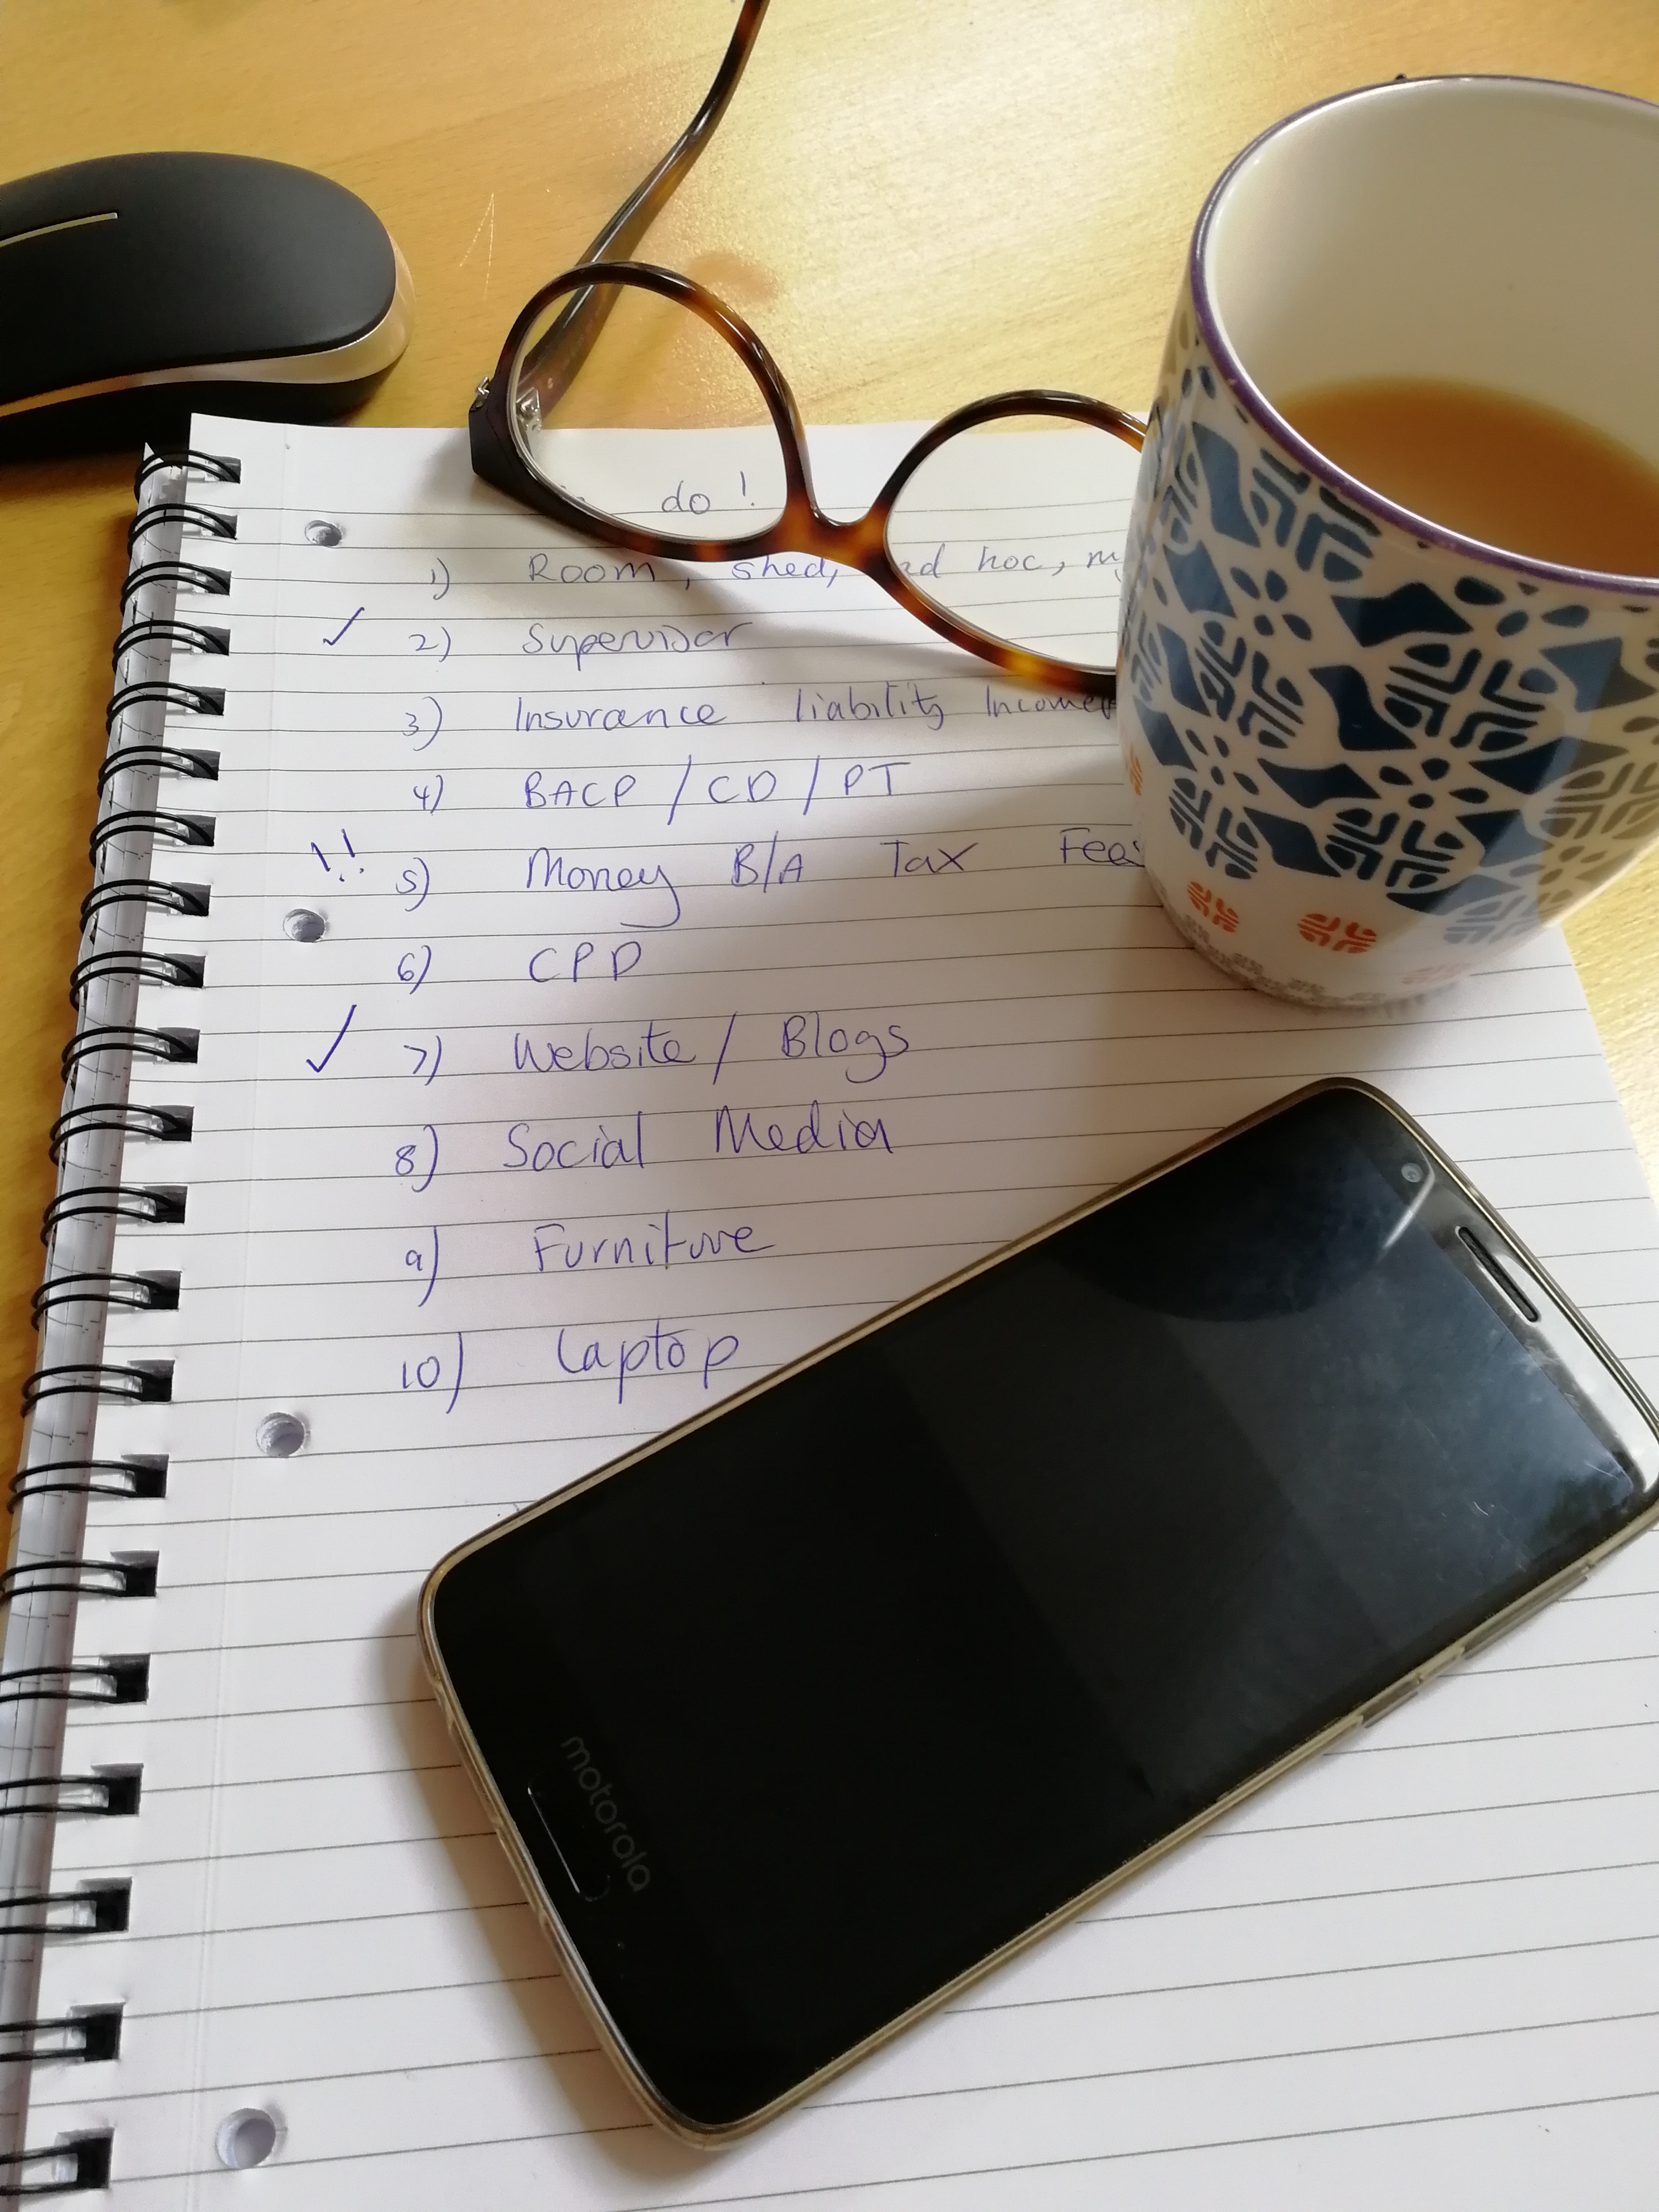 do !
1) Room, shed, ad hoc,
✓ 2) Supervisor
3) Insurance liability Income
4) BACP / CD / PT
!! 5) Money B/A Tax Fees
6) CPD
✓ 7) Website / Blogs
8) Social Media
9) Furniture
10) Laptop
motorola